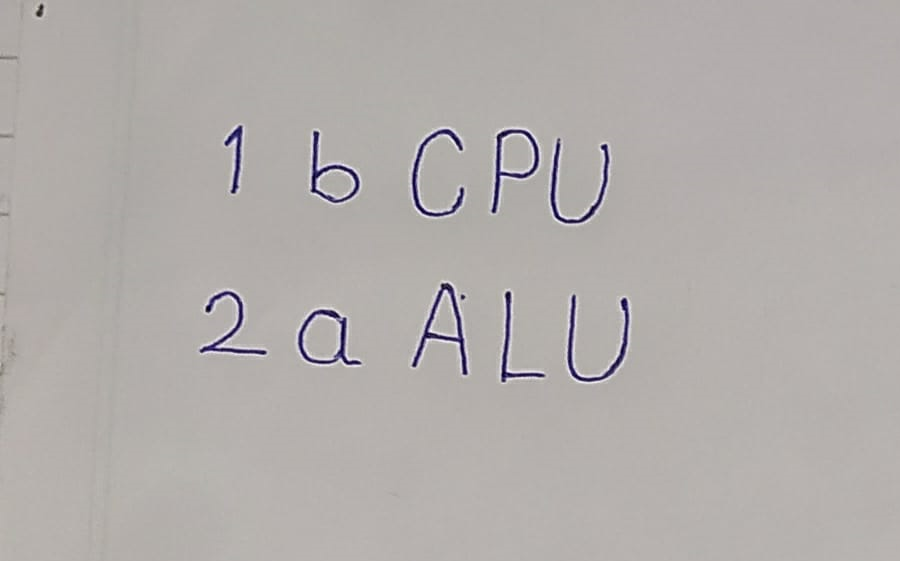 1 b CPU
2 a ALU